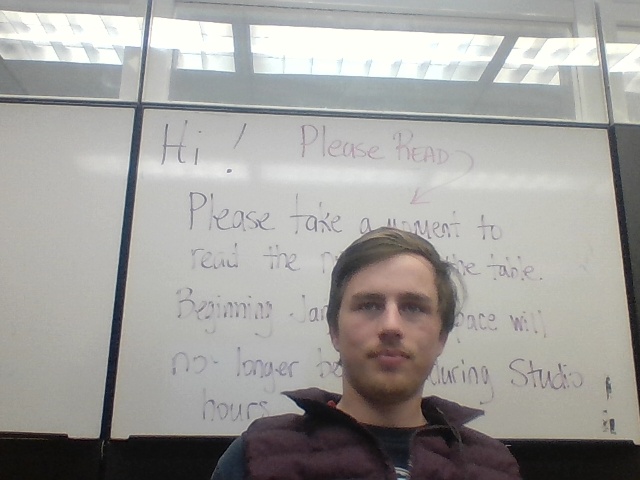 Hi! Please READ
Please take a moment to
read the the table.
Beginning pace will
no longer be during Studio
hours